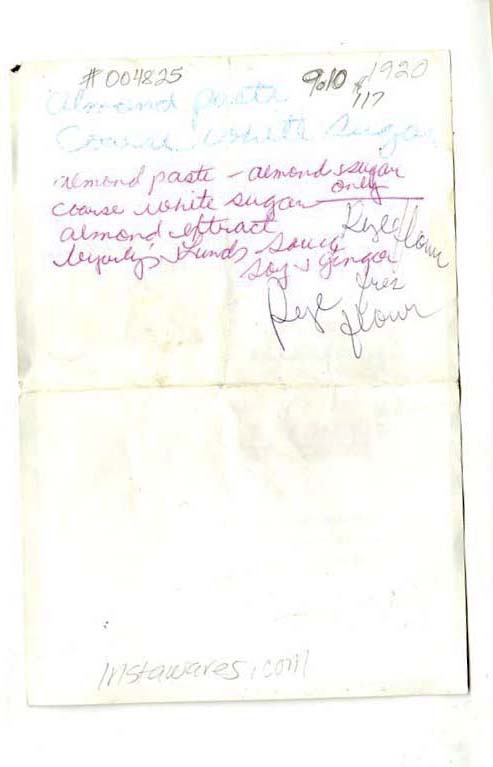 #004825 9.10 1920
$117
almond paste
Coarse white sugar
almond paste - almond & sugar
only
coarse white sugar
almond extract
Byerly's & Lunds Sauce
Soy & Ginger
flour
free
flour
instawares.com